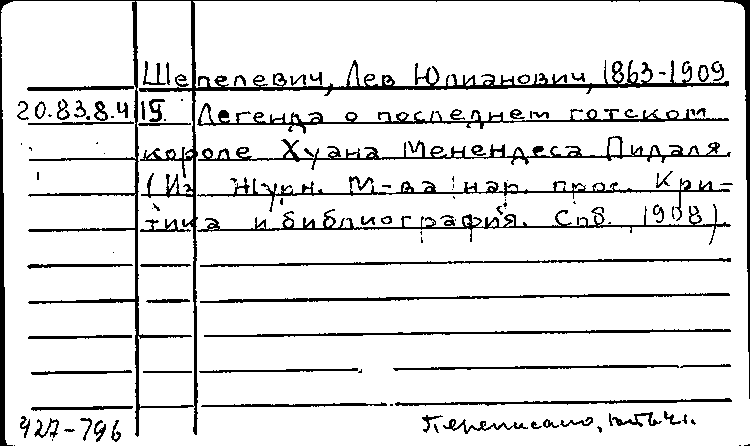 Шепелевич, Лев Юлианович, 1863-1909
20.83.8.4 15. Легенда о последнем готском
короле Хуана Менендеса Пидаля.
(Из Журн. М-ва нар. прос. Кри-
тика и библиография. Спб. 1908)
927-796
Переписано,